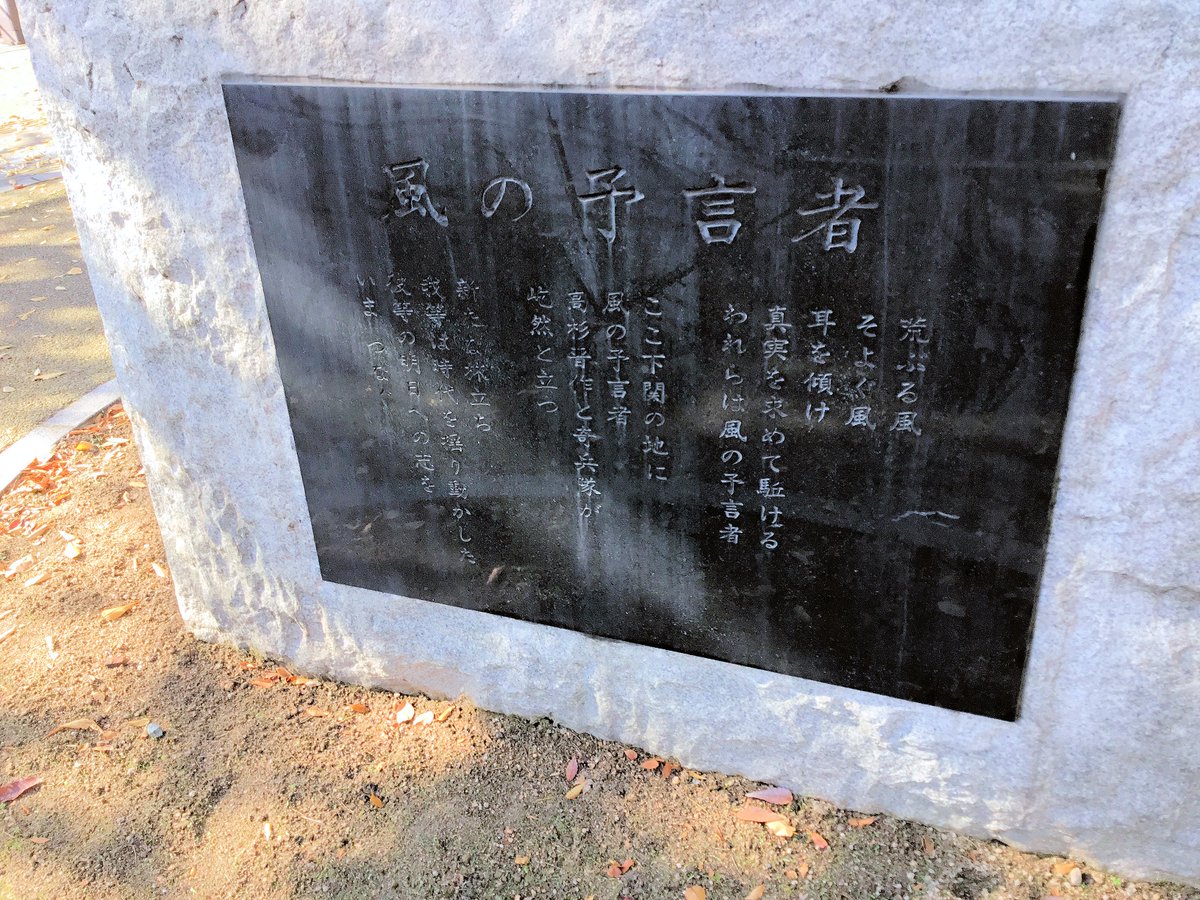 風の予言者
荒ぶる風
そよぐ風
耳を傾け
真実を求めて駈ける
われらは風の予言者
ここ下関の地に
風の予言者
高杉晋作と奇兵隊が
屹然と立つ
新たな旅立ち
我等は時代を揺り動かした
彼等の明日への志を
いま つなぐ